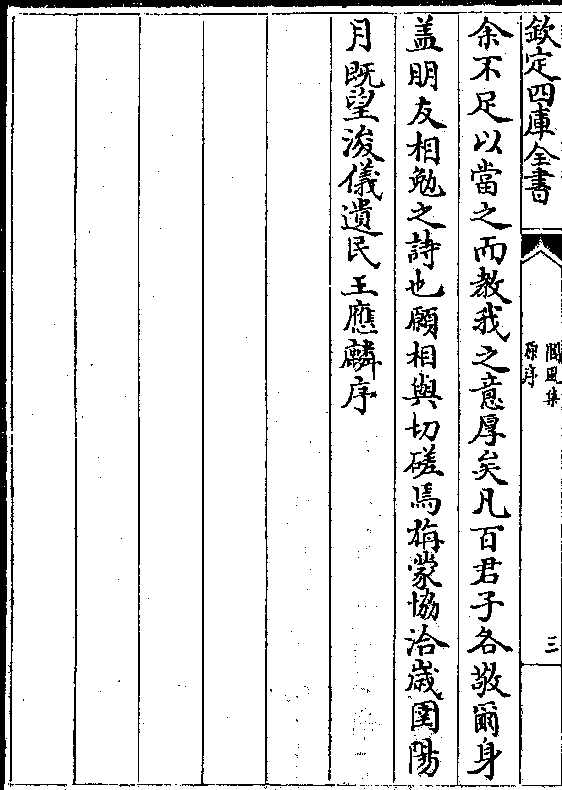 欽定四庫全書
閬風集
原序
三
余不足以當之而教我之意厚矣凡百君子各敬爾身
盖朋友相勉之詩也願相與切磋焉旃蒙協洽嵗圉陽
月既望浚儀遺民王應麟序